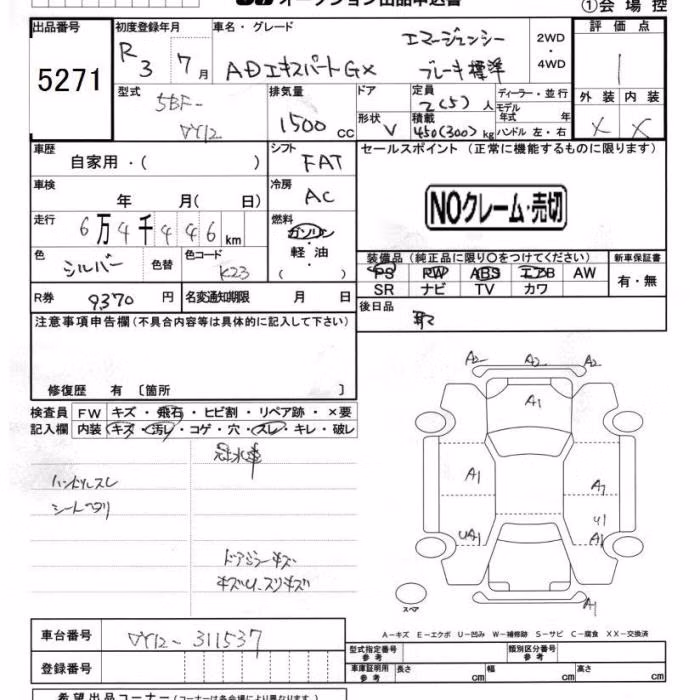 オークション出品申込書
①会場控
出品番号 5271
初度登録年月 R3 7月
車名・グレード ADエキスパートGX エマージェンシーブレーキ標準
2WD・4WD
評価点 1
外装 × 内装 ×
型式 5BF-VY12
排気量 1500cc
ドア
形状 V
定員 2(5)人
積載 450(300)kg
ディーラー・並行
モデル年式 年
ハンドル 左・右
車歴 自家用・( )
シフト FAT
セールスポイント (正常に機能するものに限ります)
NOクレーム・売切
車検 年 月( 日)
冷房 AC
走行 6万4千446km
燃料 ガソリン・軽油・( )
色 シルバー 色替
色コード K23
装備品 (純正品に限り○をつけてください)
PS PW ABS エアB AW
SR ナビ TV カワ
新車保証書 有・無
R券 9370円
名変通知期限 月 日
後日品 取
注意事項申告欄 (不具合内容等は具体的に記入して下さい)
修復歴 有 〔箇所 〕
検査員記入欄
FW キズ・飛石・ヒビ割・リペア跡・×要
内装 キズ・汚レ・コゲ・穴・スレ・キレ・破レ
冠水車
ハンドルスレ
シートヘタリ
ドアミラーキズ
キズU.スリキズ
A2 A2 A2
A1
A1 A1
U1
UA1 A1
A1
スペア
A-キズ E-エクボ U-凹み W-補修跡 S-サビ C-腐食 XX-交換済
車台番号 VY12-311537
登録番号
型式指定番号 参考
類別区分番号 参考
車庫証明用 参考 長さ cm 幅 cm 高さ cm
希望出品コーナー (コーナーは各会場により異なります)